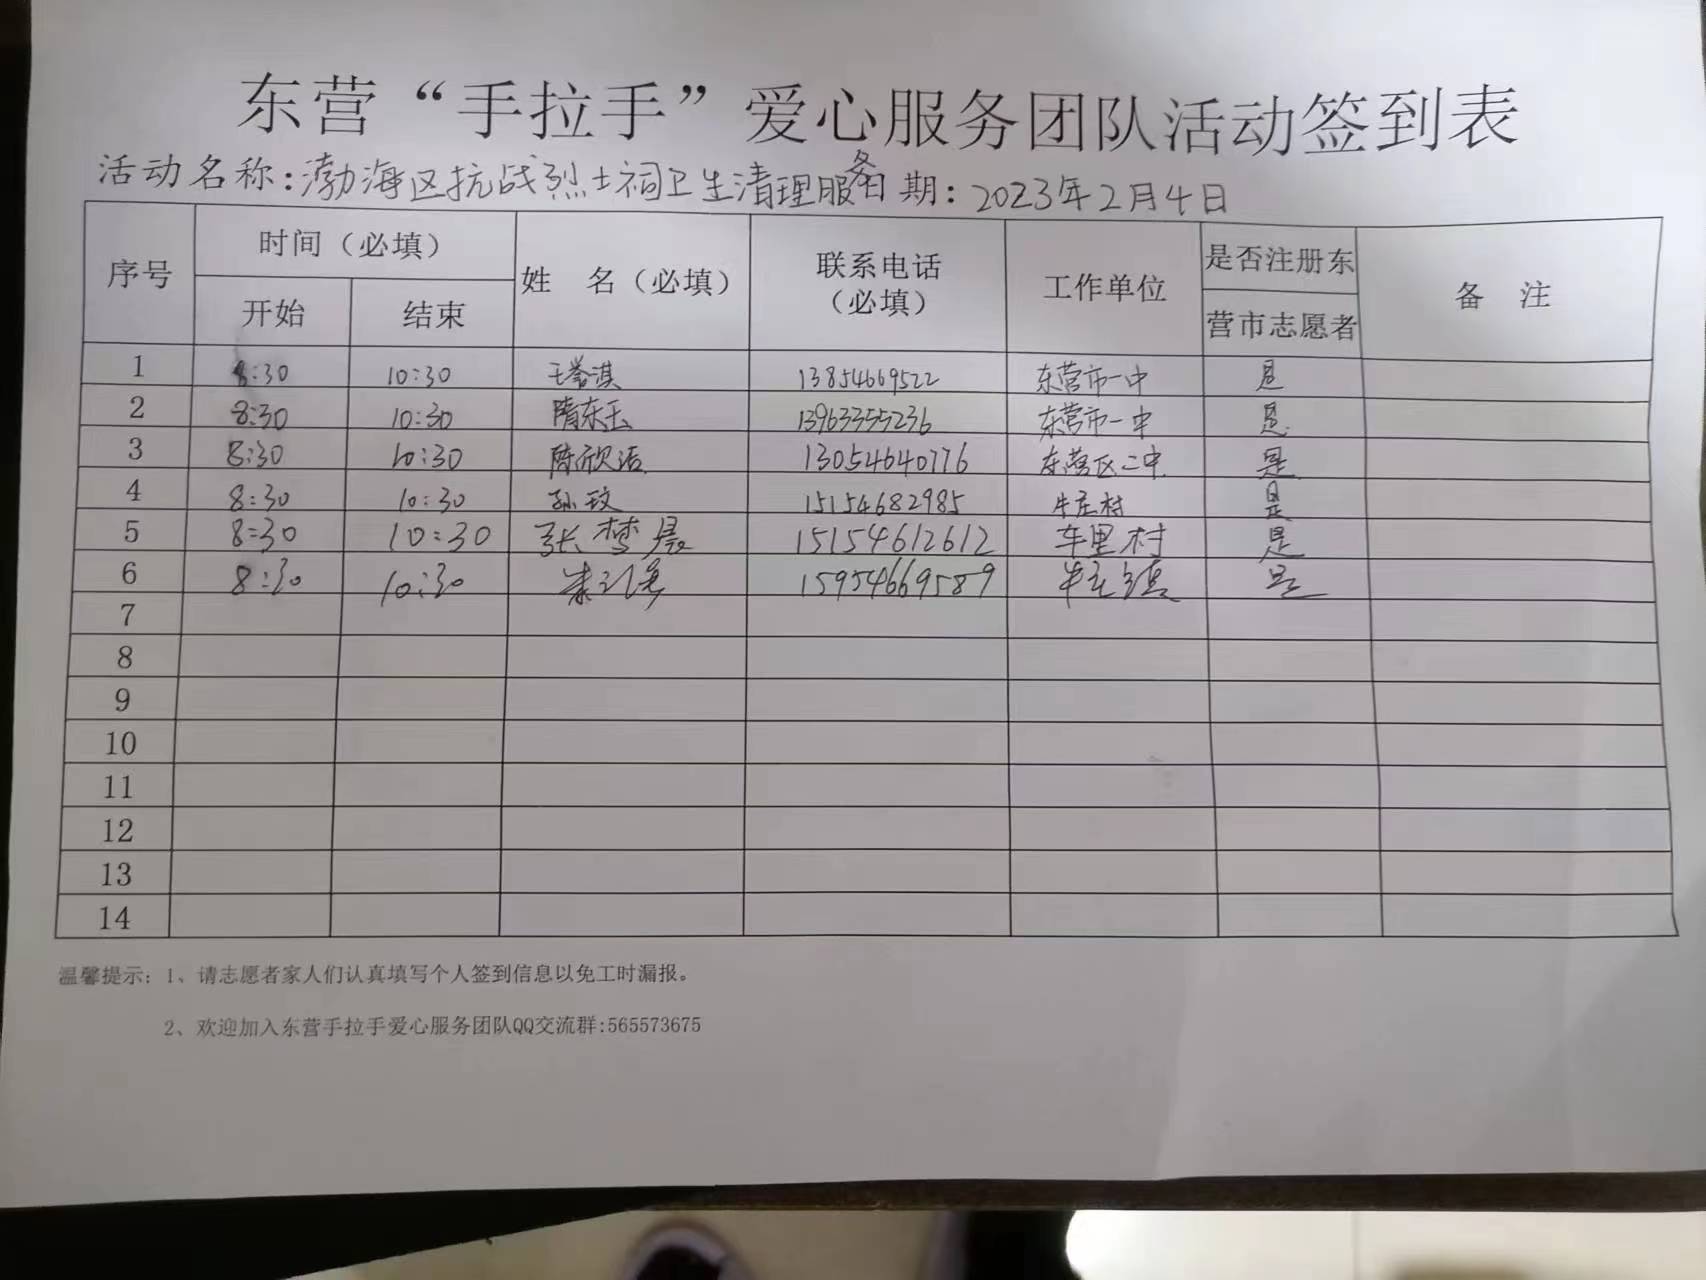 东营“手拉手”爱心服务团队活动签到表
活动名称:渤海区抗战烈士祠卫生清理服务 日期:2023年2月4日
序号 时间(必填) 姓 名(必填) 联系电话(必填) 工作单位 是否注册东营市志愿者 备 注
开始 结束
1 8:30 10:30 王誉淇 13854669522 东营市一中 是
2 8:30 10:30 隋东玉 13963355236 东营市一中 是
3 8:30 10:30 陈欣洁 13054640776 东营区二中 是
4 8:30 10:30 孙玟 15154682985 牛庄村 是
5 8:30 10:30 张梦晨 15154612612 车里村 是
6 8:30 10:30 15954669589 牛庄镇 是
7
8
9
10
11
12
13
14
温馨提示:1、请志愿者家人们认真填写个人签到信息以免工时漏报。
2、欢迎加入东营手拉手爱心服务团队QQ交流群:565573675